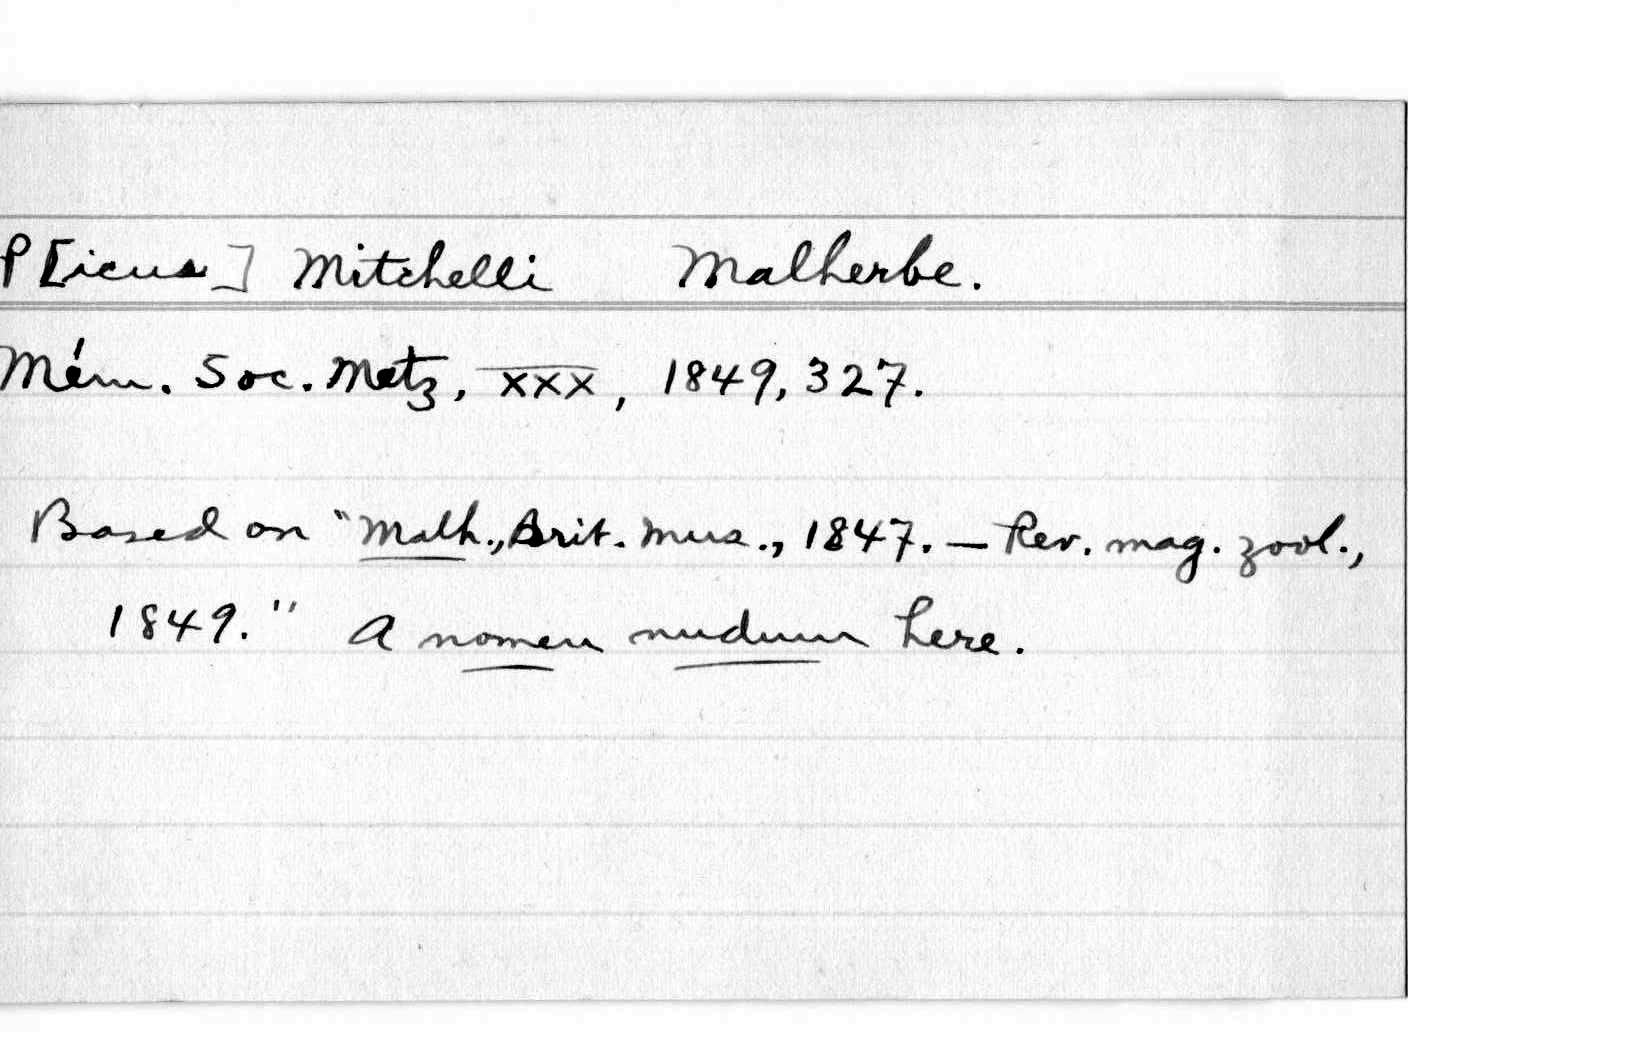 P[icus] Mitchelli Malherbe.
Mém. Soc. Metz, XXX, 1849, 327.
Based on "Malh., Brit. Mus., 1847. — Rev. mag. zool.,
1849." A nomen nudum here.